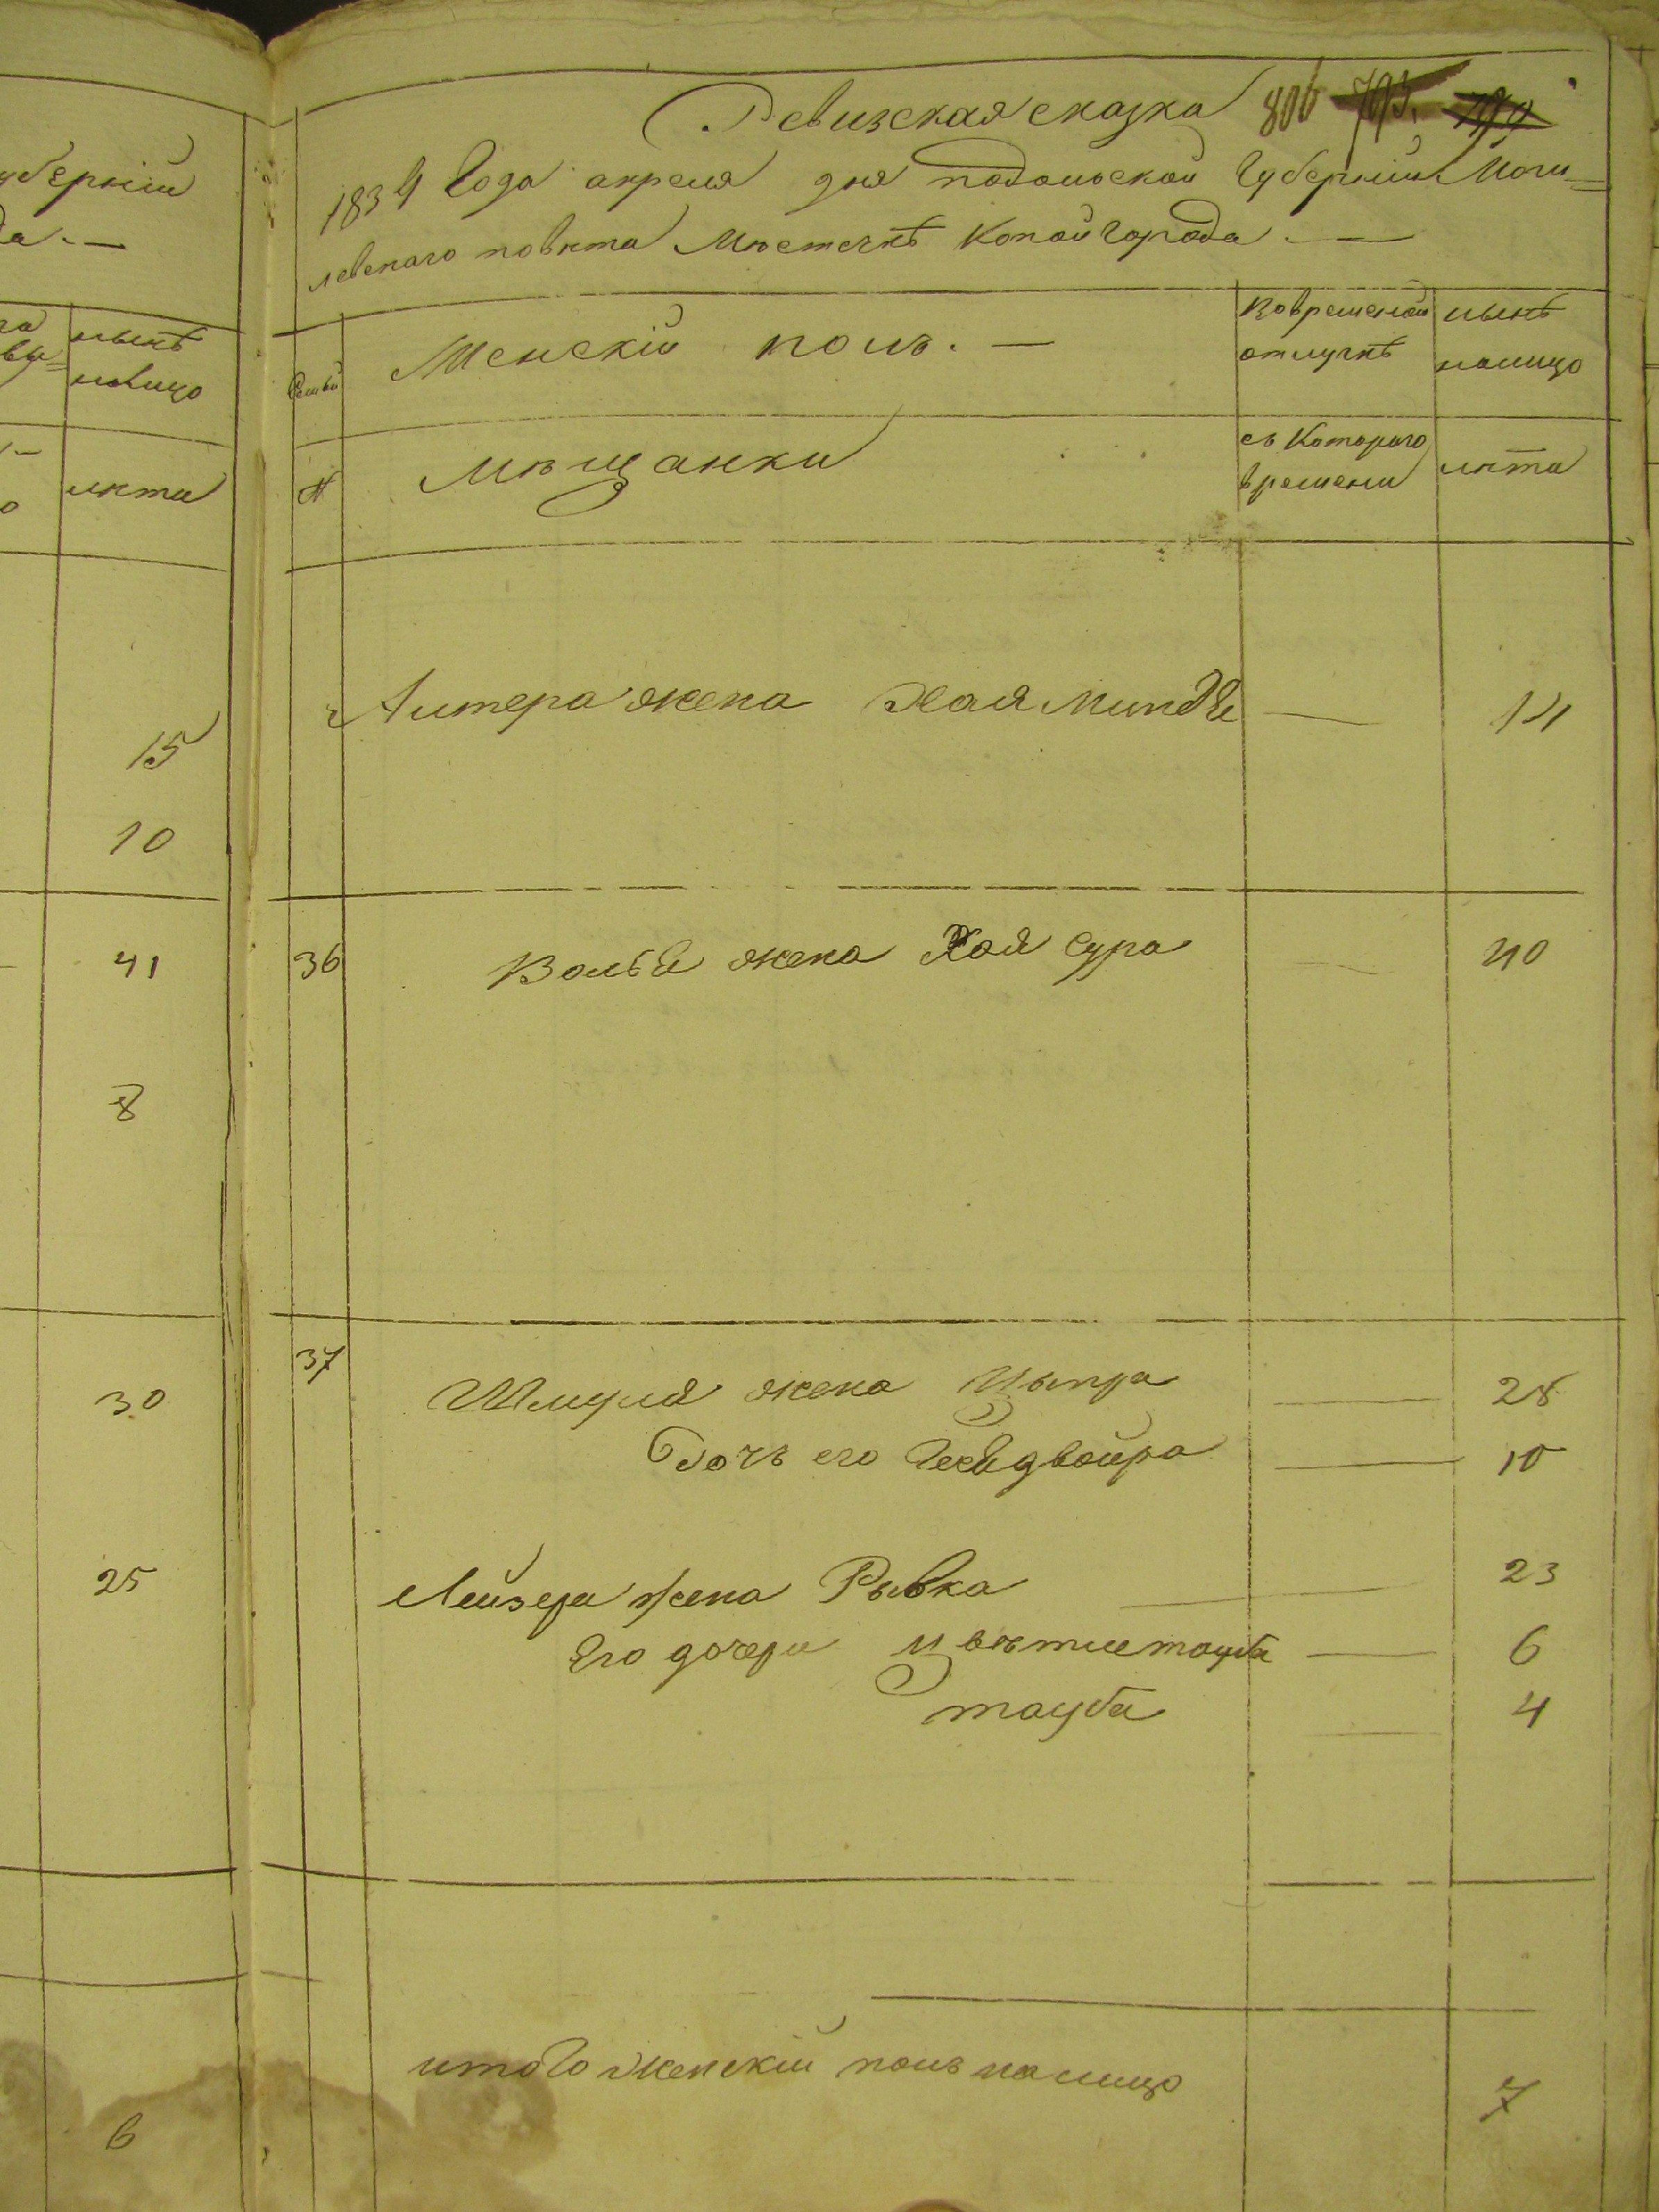 уберніи
да. —
нынѣ
налицо
лѣта
15
10
41
8
30
25
6
Ревизская сказка 806 795.
1834 Года апреля дня подольской Губерніи Моги=
левского повѣта Мѣстечкѣ Копайгорода. —
Семьи
Женскій полъ. —
Вовременой отлучкѣ
нынѣ налицо
№
Мѣщанки
съ Которого времени
лѣта
Литера жена Хая Миндя — 14
36 Вольфа жена Хая Сура — 40
37 Шмуля жена Цыпра — 28
Дочь его двойра — 10
Лейзера жена Рывка — 23
Его дочери Цвѣтие тауба — 6
тауба — 4
итого женскій полъ налицо 7